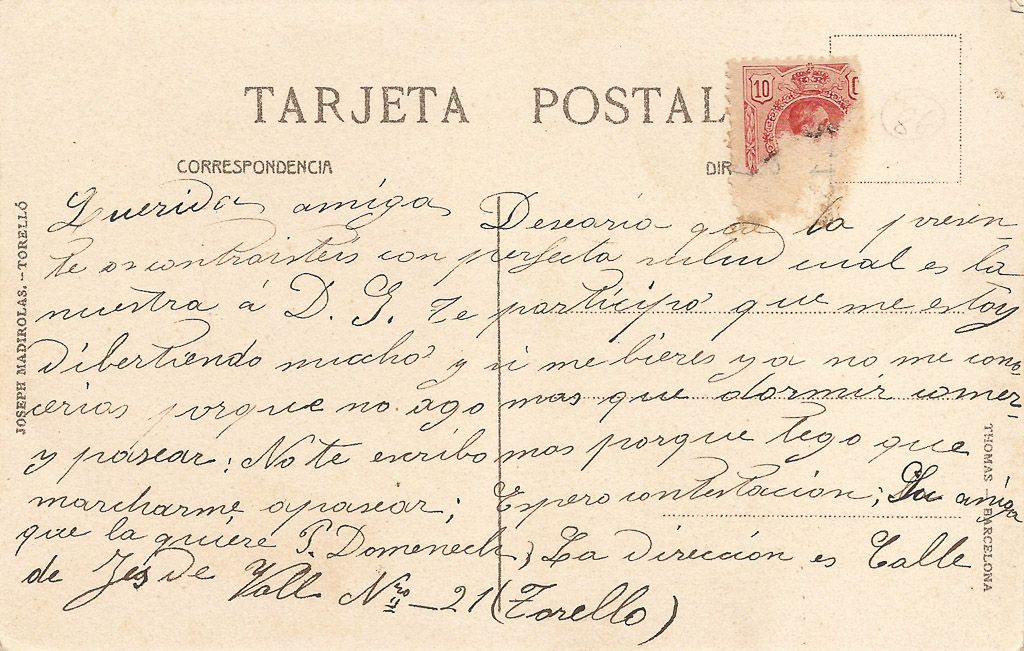 TARJETA POSTAL
CORRESPONDENCIA
DIR
10
86
JOSEPH MADIROLAS.-TORELLÓ
THOMAS BARCELONA
Querida amiga Desearia que la presen-
te os contraisteis con perfecta salud cual es la
nuestra á D. G. te participó que me estoy
dibertiendo mucho y si me bieres ya no me cono-
cerias porque no ago mas que dormir comer-
y pasear: No te escribo mas porque tego que
marcharme apasear; Espero contestación; Su amiga
que la quiére P. Domenech, La dirección es Calle
de Jes de Vall Nro 21 (Torello)